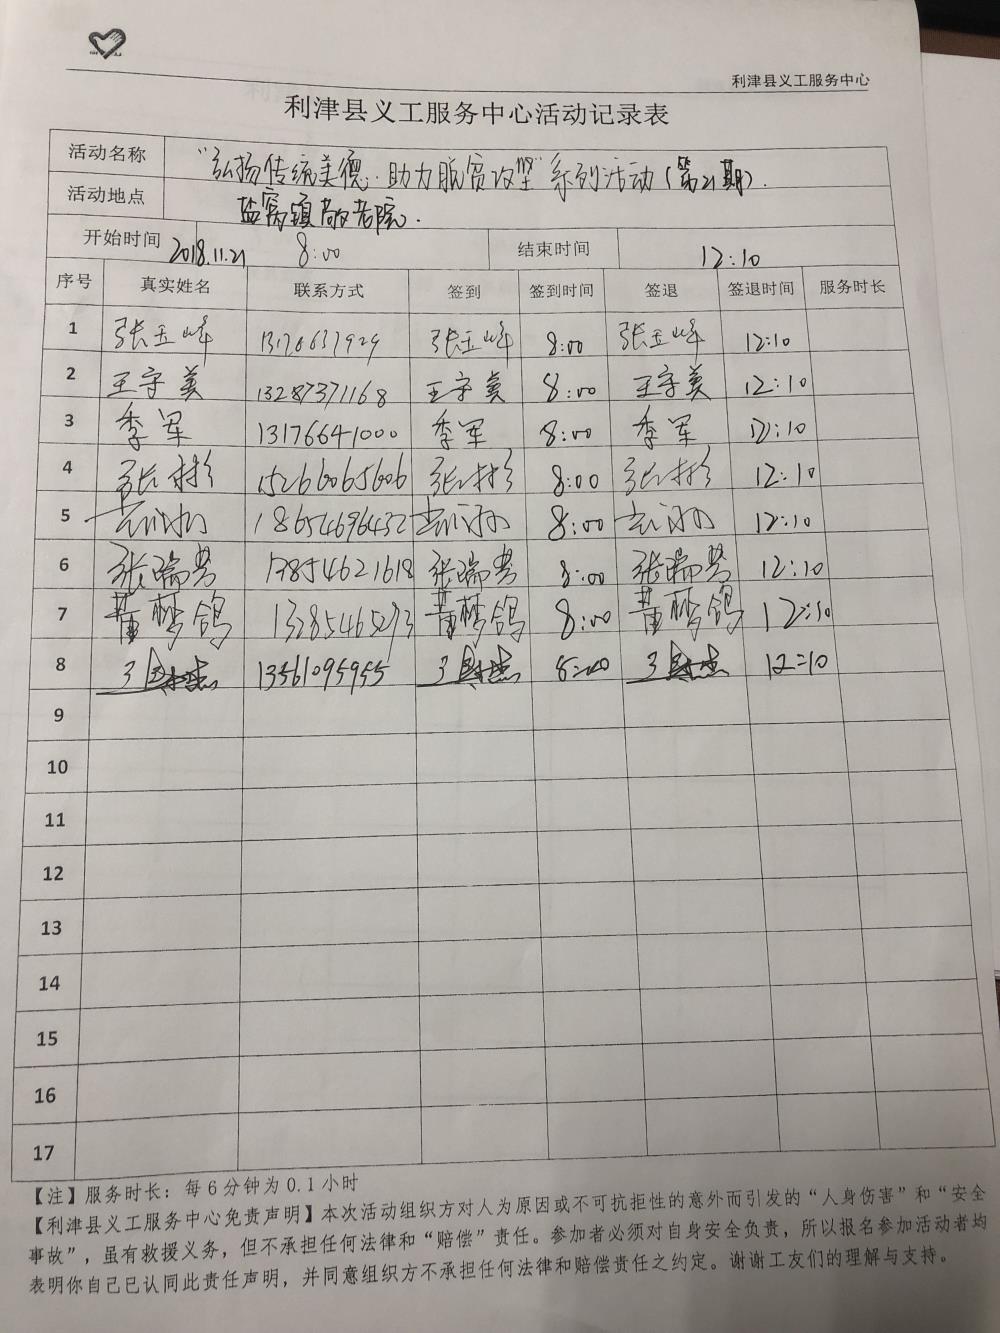 利津县义工服务中心
利津县义工服务中心活动记录表
活动名称 “弘扬传统美德·助力脱贫攻坚”系列活动(第21期).
活动地点 盐窝镇敬老院.
开始时间 2018.11.21 8:00 结束时间 12:10
序号 真实姓名 联系方式 签到 签到时间 签退 签退时间 服务时长
1 张玉峰 13176637929 张玉峰 8:00 张玉峰 12:10
2 王守美 13287371168 王守美 8:00 王守美 12:10
3 季军 13176641000 季军 8:00 季军 12:10
4 张彬 15266065606 张彬 8:00 张彬 12:10
5 18654696432 8:00 12:10
6 张瑞芸 13854621618 张瑞芸 8:00 张瑞芸 12:10
7 董梦鸽 13285465293 董梦鸽 8:00 董梦鸽 12:10
8 13561095955 8:00 12:10
9
10
11
12
13
14
15
16
17
【注】服务时长：每6分钟为0.1小时
【利津县义工服务中心免责声明】本次活动组织方对人为原因或不可抗拒性的意外而引发的“人身伤害”和“安全
事故”，虽有救援义务，但不承担任何法律和“赔偿”责任。参加者必须对自身安全负责，所以报名参加活动者均
表明你自己已认同此责任声明，并同意组织方不承担任何法律和赔偿责任之约定。谢谢工友们的理解与支持。